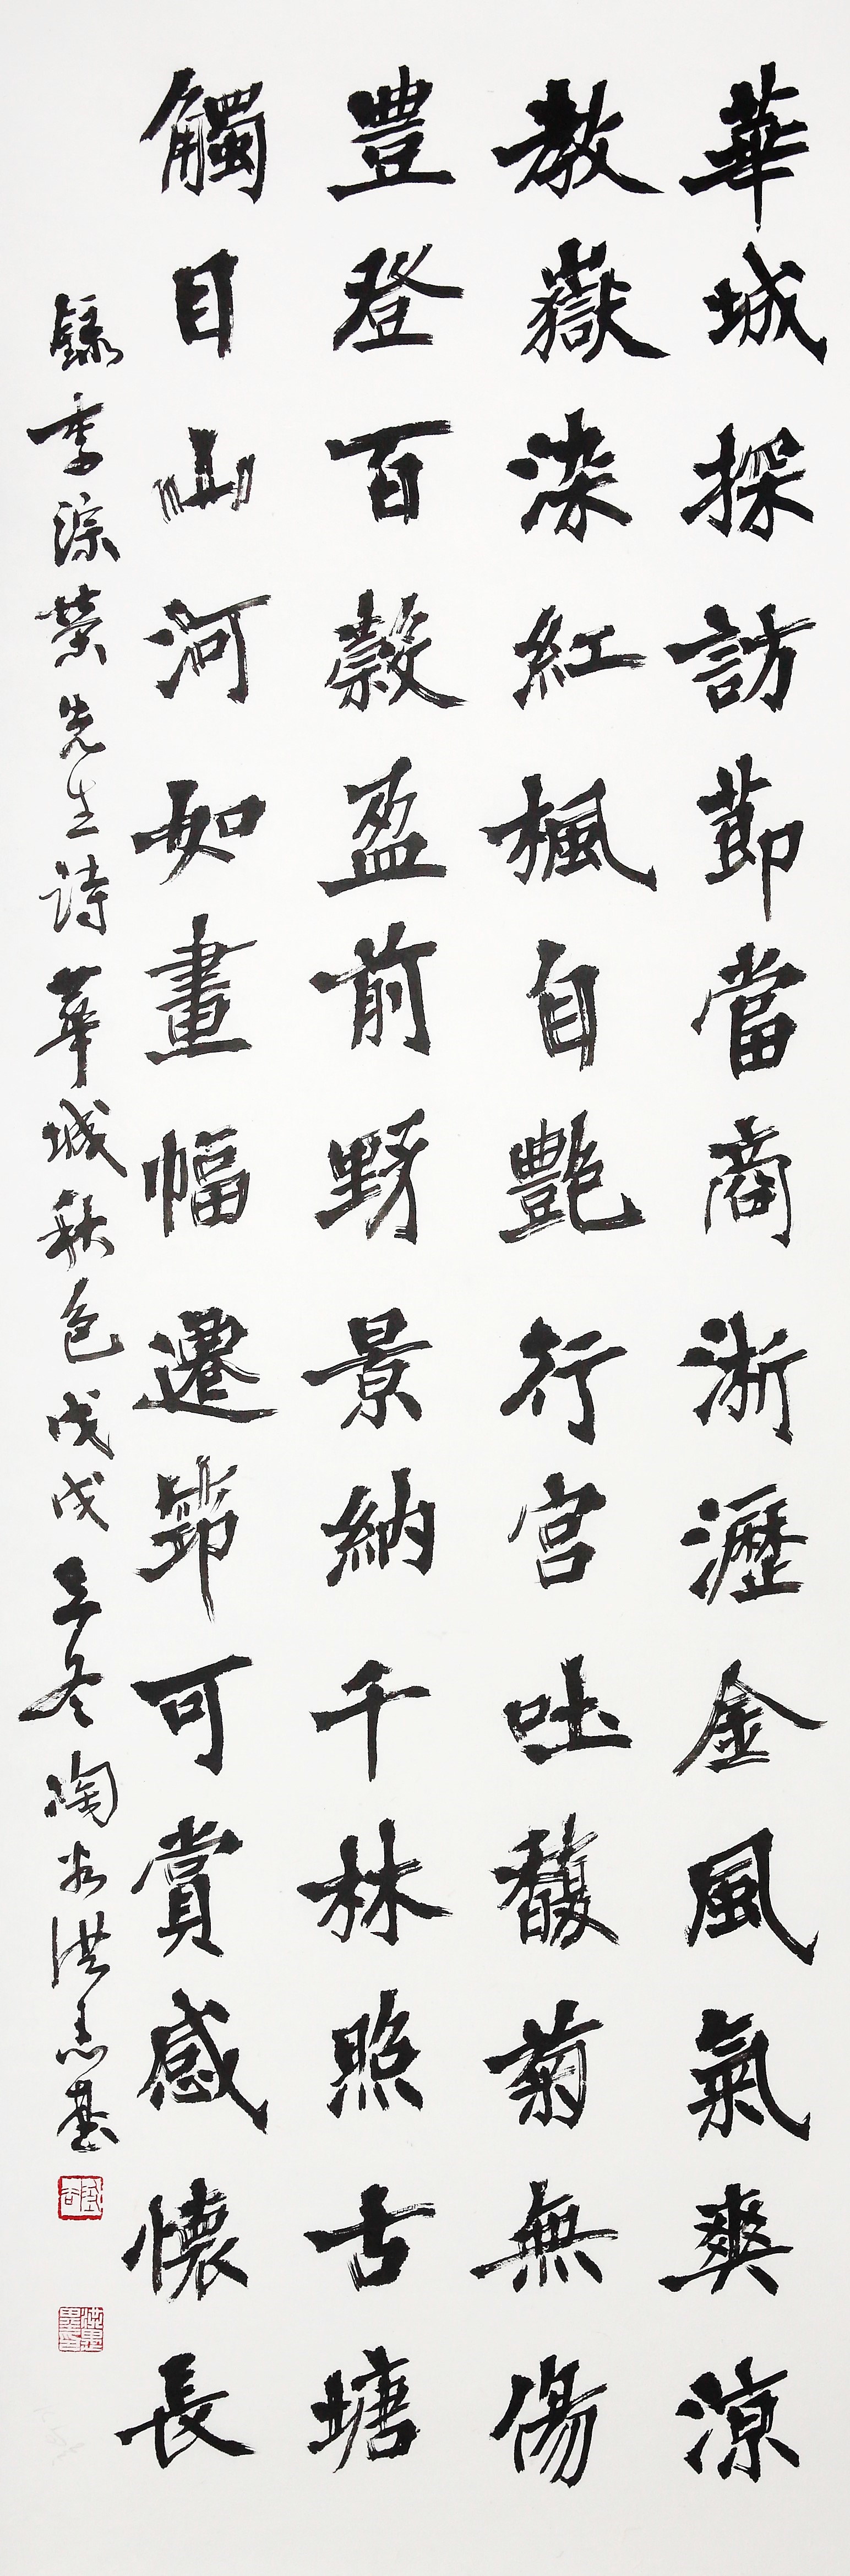 華城探訪節當商淅瀝金風氣爽涼
教嶽染紅楓自艷行宮吐馥菊無傷
豐登百穀盈前野景納千林照古塘
觸目山河如畫幅遷筇可賞感懷長
錄李淙榮先生詩華城秋色戊戌立冬陶谷洪愚基